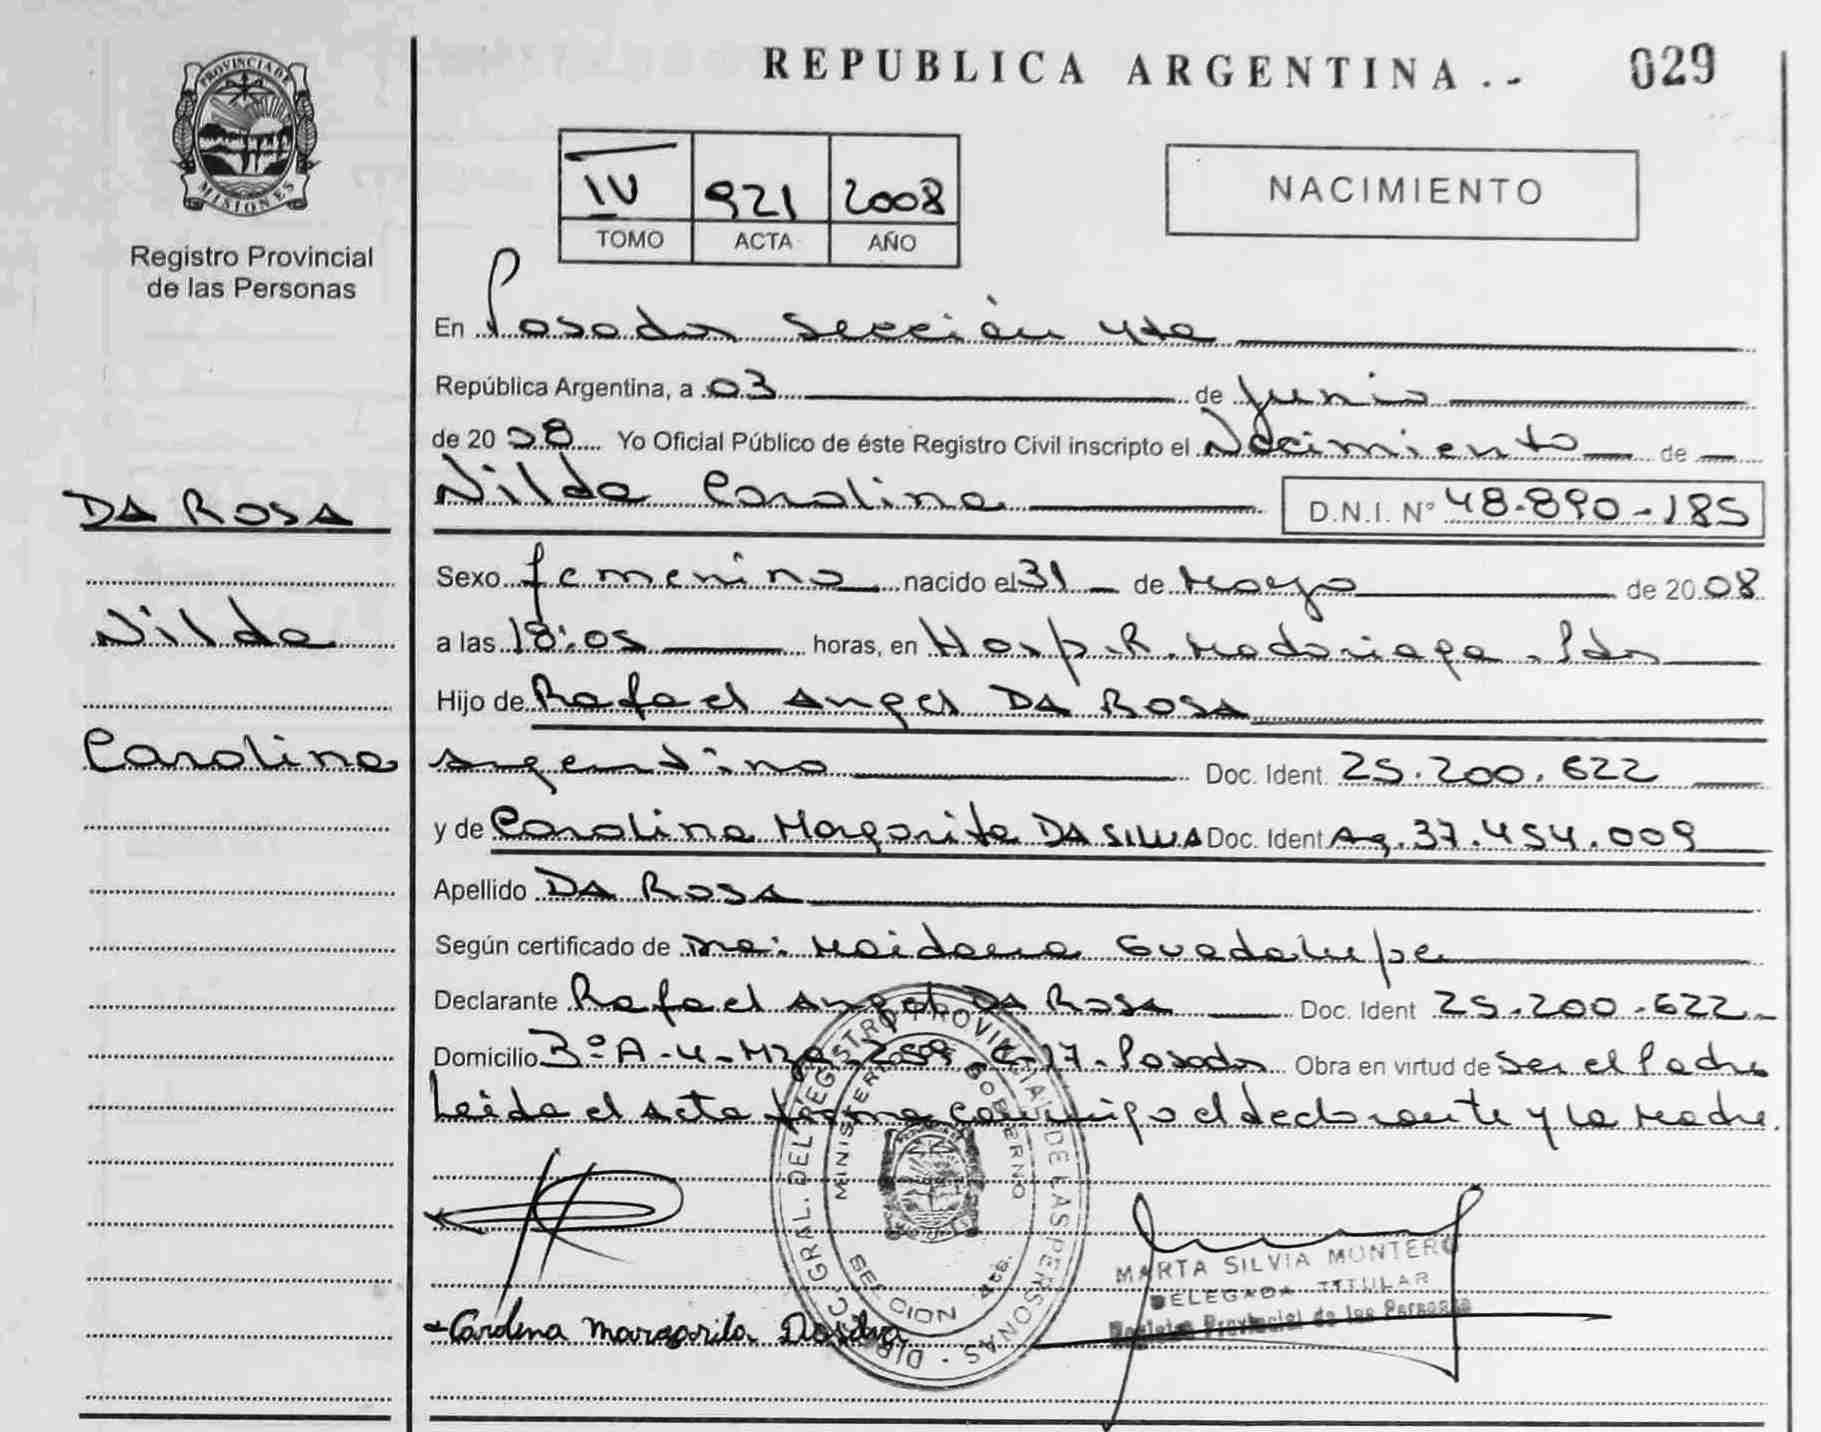 REPUBLICA ARGENTINA.-
029
PROVINCIA DE
MISIONES
Registro Provincial
de las Personas
IV 921 2008
TOMO ACTA AÑO
NACIMIENTO
En Posadas Sección 4ta
República Argentina, a 03 de Junio
de 2008 Yo Oficial Público de éste Registro Civil inscripto el Nacimiento de
DA ROSA
Nilda Carolina D.N.I. N° 48.890-185
Sexo femenino nacido el 31 de Mayo de 2008
Nilda
a las 18:05 horas, en Hosp. R. Madariaga. Pdas
Hijo de Rafael Angel DA ROSA
Carolina
Argentino Doc. Ident. 25.200.622
y de Carolina Margarita DA SILVA Doc. Ident Ag. 37.454.009
Apellido DA ROSA
Según certificado de Dra: Maidana Guadalupe
Declarante Rafael Angel DA ROSA Doc. Ident 25.200.622
Domicilio 3º A-4-Mza 259 C-17-Posadas Obra en virtud de Ser el Padre
Leida el Acta firma conmigo el declarante y la Madre.
DIRECC. GRAL. DEL REGISTRO PROVINCIAL DE LAS PERSONAS
MINISTERIO DE GOBIERNO
SECCION 4ta.
MARTA SILVIA MONTERO
DELEGADA TITULAR
Registro Provincial de las Personas
Carolina Margarita Dasilva